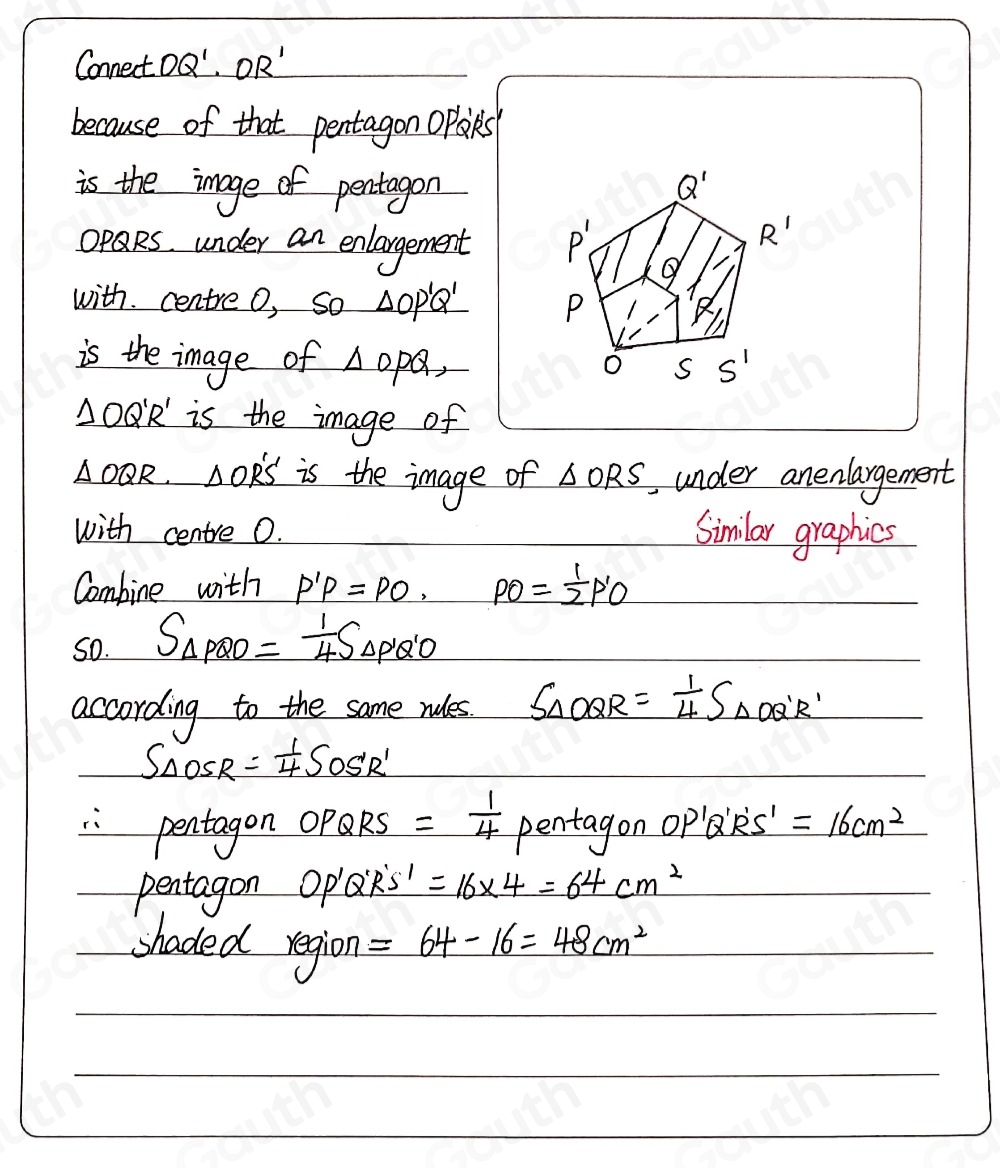 Connect OQ'. OR'
because of that pentagon OP'Q'R'S'
is the image of pentagon
OPQRS. under an enlargement
with. centre O, so ΔOP'Q'
is the image of Δ OPQ,
ΔOQ'R' is the image of
ΔOQR. ΔOR'S' is the image of ΔORS, under anenlargement
with centre O.
Similar graphics
Combine with P'P = PO, PO = 1/2 P'O
so. SΔPQO = 1/4 SΔP'Q'O
according to the same rules. SΔOQR = 1/4 SΔOQ'R'
SΔOSR = 1/4 SOS'R'
∴ pentagon OPQRS = 1/4 pentagon OP'Q'R'S' = 16cm²
pentagon OP'Q'R'S' = 16×4 = 64 cm²
shaded region = 64 - 16 = 48 cm²
Q'
P'
R'
Q
P
R
O
S
S'
Gauth